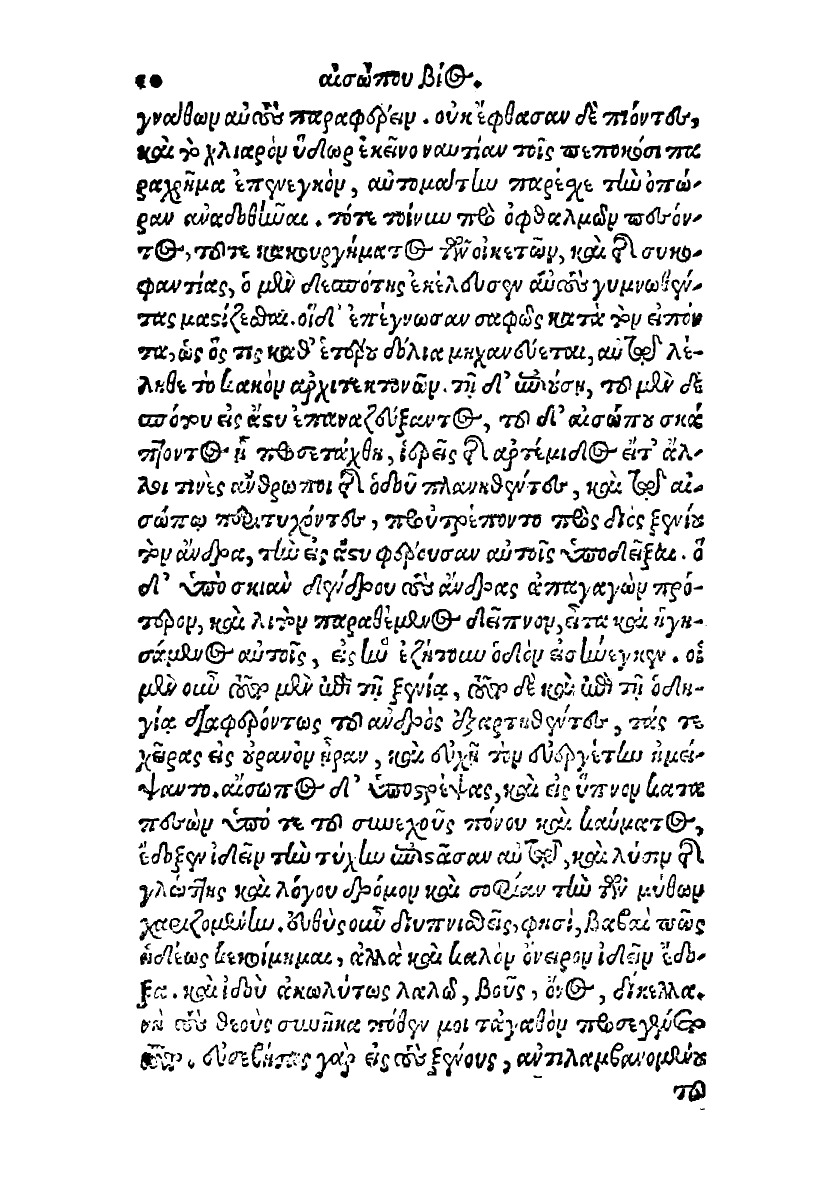 10 αἰσώπου βίος.
γναθων αὐτοὺς παραφέρειν. οὐκ ἔφθασαν δὲ πιόντες,
καὶ τὸ χλιαρὸν ὕδωρ ἐκεῖνο ναυτίαν τοῖς πεπωκόσι πα
ραχρῆμα ἐπενεγκὸν, αὐτομάτην παρέσχε τὴν ὀπώ-
ραν ἀναδοθῆναι. τότε τοίνυν πρὸ ὀφθαλμῶν πεσόν-
τος, τοῦτε κακουργήματος τῶν οἰκετῶν, καὶ τῆς συκο-
φαντίας, ὁ μὲν δεσπότης ἐκέλευσεν αὐτοὺς γυμνωθέν-
τας μαστίζεσθαι. οἱ δ' ἐπέγνωσαν σαφῶς κατὰ τὸν εἰπόν
τα, ὡς ὅς τις καθ' ἑτέρου δόλια μηχανεύεται, αὐτὸς λέ-
ληθε τὸ κακὸν ἀρχιτεκτονῶν. τῇ δ' ἐπιούσῃ, τοῦ μὲν δε
σπότου εἰς ἄστυ ἐπαναζεύξαντος, τοῦ δ' αἰσώπου σκά
πτοντος ᾗ προσετάχθη, ἱερεῖς τῆς ἀρτέμιδος εἴτ' ἄλ-
λοι τινὲς ἄνθρωποι τῆς ὁδοῦ πλανηθέντες, καὶ τῷ αἰ-
σώπῳ περιτυχόντες, προὐτρέποντο πρὸς διὸς ξενίου
τὸν ἄνδρα, τὴν εἰς ἄστυ φέρουσαν αὐτοῖς ὑποδεῖξαι. ὁ
δ' ὑπὸ σκιὰν δένδρου τοὺς ἄνδρας ἀπαγαγὼν πρό-
τερον, καὶ λιτὸν παραθέμενος δεῖπνον, εἶτα καὶ ἡγη-
σάμενος αὐτοῖς, εἰς ἣν ἐζήτουν ὁδὸν εἰσήνεγκεν. οἱ
μὲν οὖν τοῦτο μὲν ἐπὶ τῇ ξενίᾳ, τοῦτο δὲ καὶ ἐπὶ τῇ ὁδη-
γίᾳ διαφερόντως τοῦ ἀνδρὸς ἐξαρτηθέντες, τάς τε
χεῖρας εἰς οὐρανὸν ἦραν, καὶ εὐχῇ τὸν εὐεργέτην ἠμεί-
ψαντο. αἴσωπος δ' ὑποστρέψας, καὶ εἰς ὕπνον κατα
πεσὼν ὑπό τε τοῦ συνεχοῦς πόνου καὶ καύματος,
ἔδοξεν ἰδεῖν τὴν τύχην ἐπιστᾶσαν αὐτῷ, καὶ λύσιν τῆς
γλώττης καὶ λόγου δρόμον καὶ σοφίαν τὴν τῶν μύθων
χαριζομένην. εὐθὺς οὖν διυπνισθεὶς, φησί, βαβαὶ πῶς
ἡδέως κεκοίμημαι, ἀλλὰ καὶ καλὸν ὄνειρον ἰδεῖν ἔδο-
ξα. καὶ ἰδοὺ ἀκωλύτως λαλῶ, βοῦς, ὄνος, δίκελλα.
νὴ τοὺς θεοὺς συνῆκα πόθεν μοι τἀγαθὸν προσεγένετο
τοῦτο. εὐσεβήσας γὰρ εἰς τοὺς ξένους, ἀντιλαμβανομένου
τοῦ